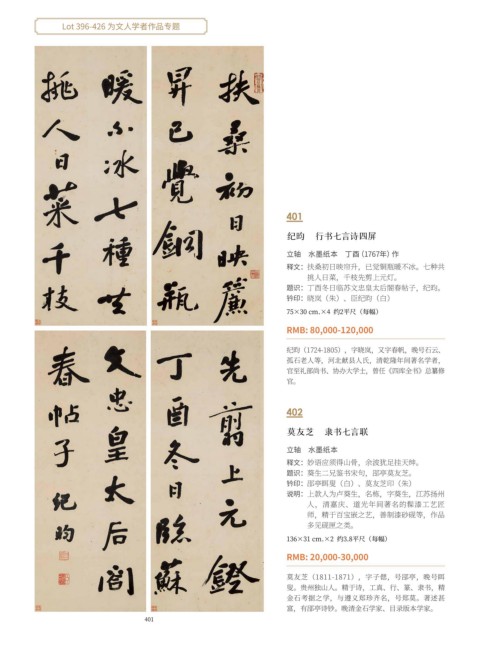 Lot 396-426 为文人学者作品专题
扶桑初日映簾
昇已覺銅瓶
暖不冰七種共
挑人日菜千枝
先剪上元鐙
丁酉冬日臨蘇
文忠皇太后閤
春帖子 紀昀
401
纪昀 行书七言诗四屏
立轴 水墨纸本 丁酉 (1767年) 作
释文：扶桑初日映帘升，已觉铜瓶暖不冰。七种共
挑人日菜，千枝先剪上元灯。
题识：丁酉冬日临苏文忠皇太后阁春帖子，纪昀。
钤印：晓岚（朱）、臣纪昀（白）
75×30 cm.×4 约2平尺（每幅）
RMB: 80,000-120,000
纪昀（1724-1805），字晓岚，又字春帆，晚号石云、
孤石老人等，河北献县人氏，清乾隆年间著名学者，
官至礼部尚书、协办大学士，曾任《四库全书》总纂修
官。
402
莫友芝 隶书七言联
立轴 水墨纸本
释文：妙语应须得山骨，余波犹足挂天绅。
题识：葵生二兄鉴书宋句，邵亭莫友芝。
钤印：邵亭眲叟（白）、莫友芝印（朱）
说明：上款人为卢葵生，名栋，字葵生，江苏扬州
人，清嘉庆、道光年间著名的髹漆工艺匠
师，精于百宝嵌之艺，善制漆砂砚等，作品
多见砚匣之类。
136×31 cm.×2 约3.8平尺（每幅）
RMB: 20,000-30,000
莫友芝（1811-1871），字子偲，号邵亭，晚号眲
叟。贵州独山人。精于诗，工真、行、篆、隶书，精
金石考据之学，与遵义郑珍齐名，号郑莫。著述甚
富，有邵亭诗钞。晚清金石学家、目录版本学家。
401